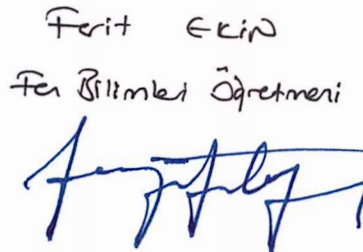 Ferit EKİN
Fen Bilimleri Öğretmeni